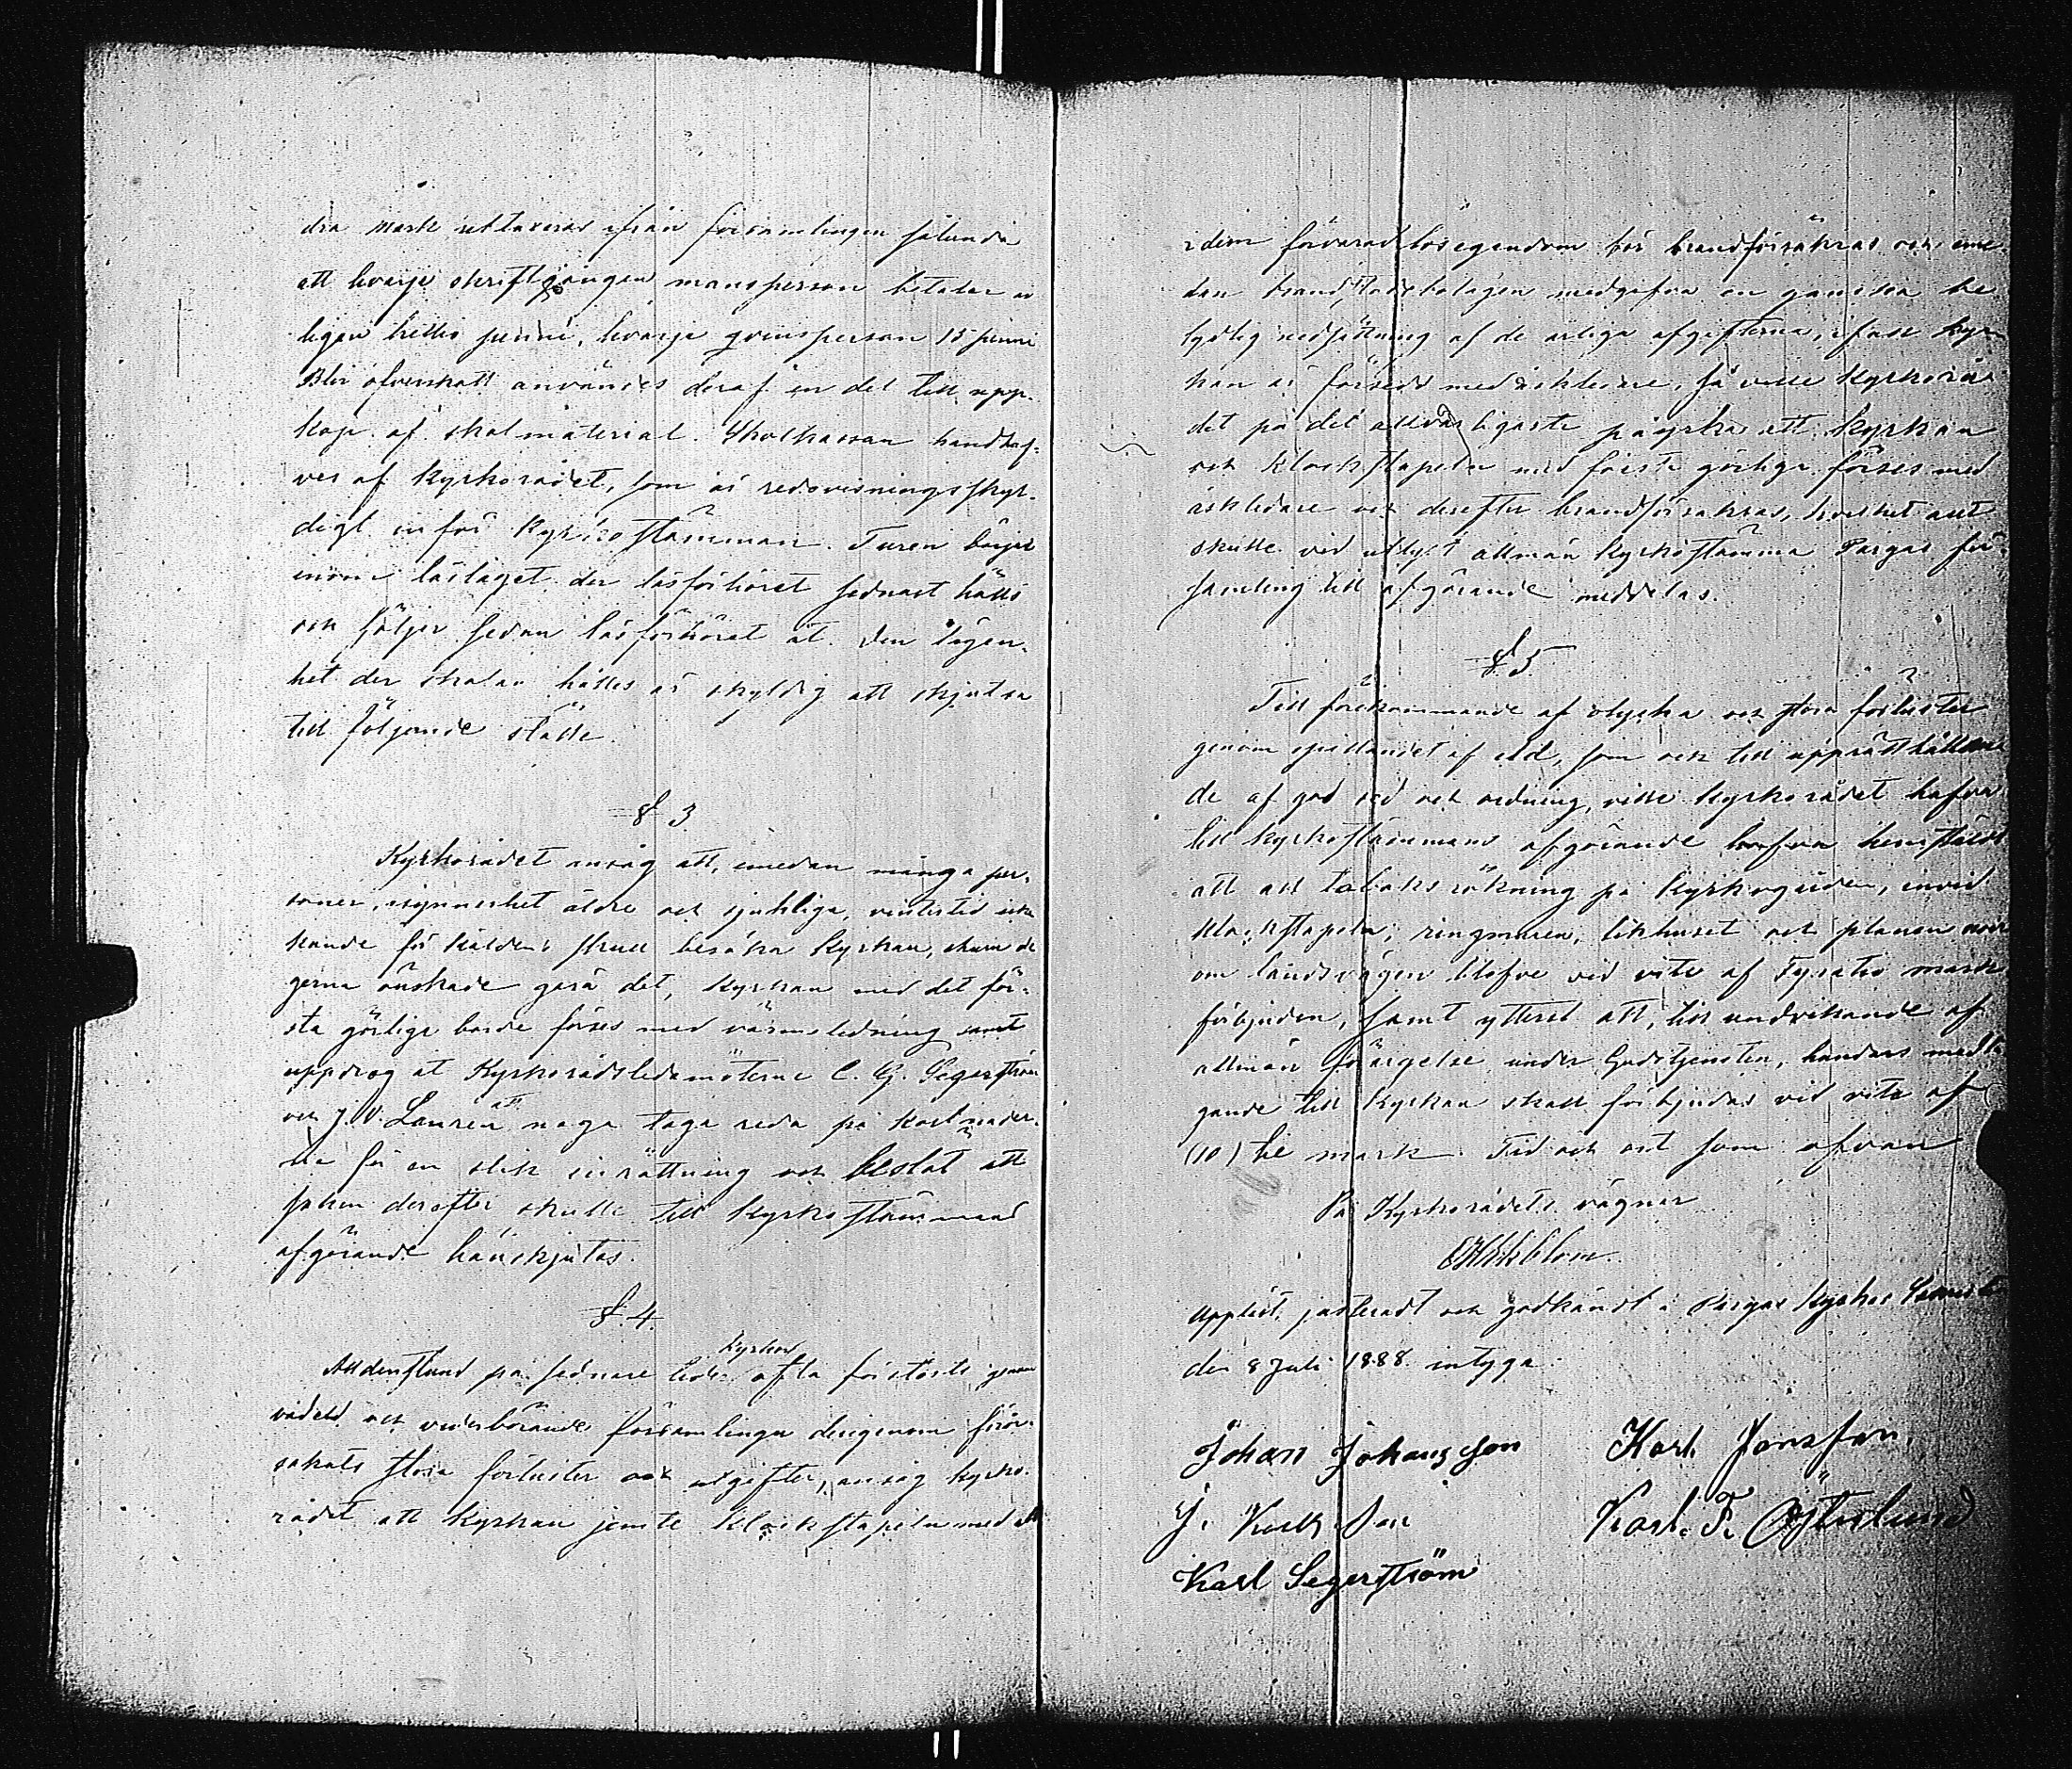 dra mark uttaxeras ifrån församlingen sålunda
att hvarje skriftgången mansperson betalar
ligen trettio penni, hvarje qvinsperson 15 penni
Blir öfverskott användes deraf en del till upp-
köp af skolmaterial. Skolkassan handhaf-
ves af Kyrkorådet, som är redovisningsskyl-
digt inför Kyrkostämman. Turen börjar
inom läslaget der läsförhöret sednast hålls
och följer sedan läsförhöret åt. Den lägen-
het der skolan hålles är skyldig att skjutsa
till följande ställe.
§ 3
Kyrkorådet ansåg att, emedan många per-
soner, isynnerhet äldre och sjukliga, vintertid icke
kunde för kölden skull besöka Kyrkan, ehuru de
gerna önskade göra det, Kyrkan med det för-
sta görliga borde förses med värmeledning samt
uppdrog åt Kyrkorådsledamöterne C. G. Segerström
och J. V. Lauren att noga taga reda på kostnader-
na för en slik inrättning och beslöt att
saken derefter skulle till Kyrkostämmans
afgörande hänskjutas.
§ 4.
Alldenstund på sednare tider Kyrkor ofta förstörts genom
vådeld och vederbörande församlingar derigenom föror-
sakats stora förluster och utgifter, ansåg Kyrko-
rådet att Kyrkan jemte Klockstapeln med all
i dem förvarad lösegendom bör brandförsäkras och eme-
dan brandstodsbolagen medgifva en ganska be
tydlig nedsättning af de årliga afgifterna, ifall kyr-
kan är försedd med åskledare, så ville Kyrkorå-
det på det allvarligaste påyrka att Kyrkan
och Klockstapeln med första görliga förses med
åskledare och derefter brandförsäkras, hvarket allt
skulle vid utlyst allmän Kyrkostämma Pargas för-
samling till afgörande meddelas.
§ 5.
Till förekommande af olycka och stora förluster
genom spillandet af eld, som och till upprätthållan
de af god sed och ordning, ville Kyrkorådet hafva
till Kyrkostämmans afgörande hafva hemstäldt
att all tobaksrökning på Kyrkogården, invid
Klockstapeln, ringmuren, likhuset och planen
om landsvägen blefve vid vite af Fyratio mark
förbjuden, samt ytterst att, till undvikande af
allmän förargelse under Gudstjensten, hundars medta
gande till Kyrkan skall förbjudas vid vite af
(10) tio mark. Tid och ort som ofvan
På Kyrkorådets vägnar
Uppläst, justeradt och godkändt i Pargas Kyrkas
den 8 Juli 1888 intyga:
Johan Johansson Karl Jansson,
J. Karlsson Karl. F. Österlund
Karl Segerström